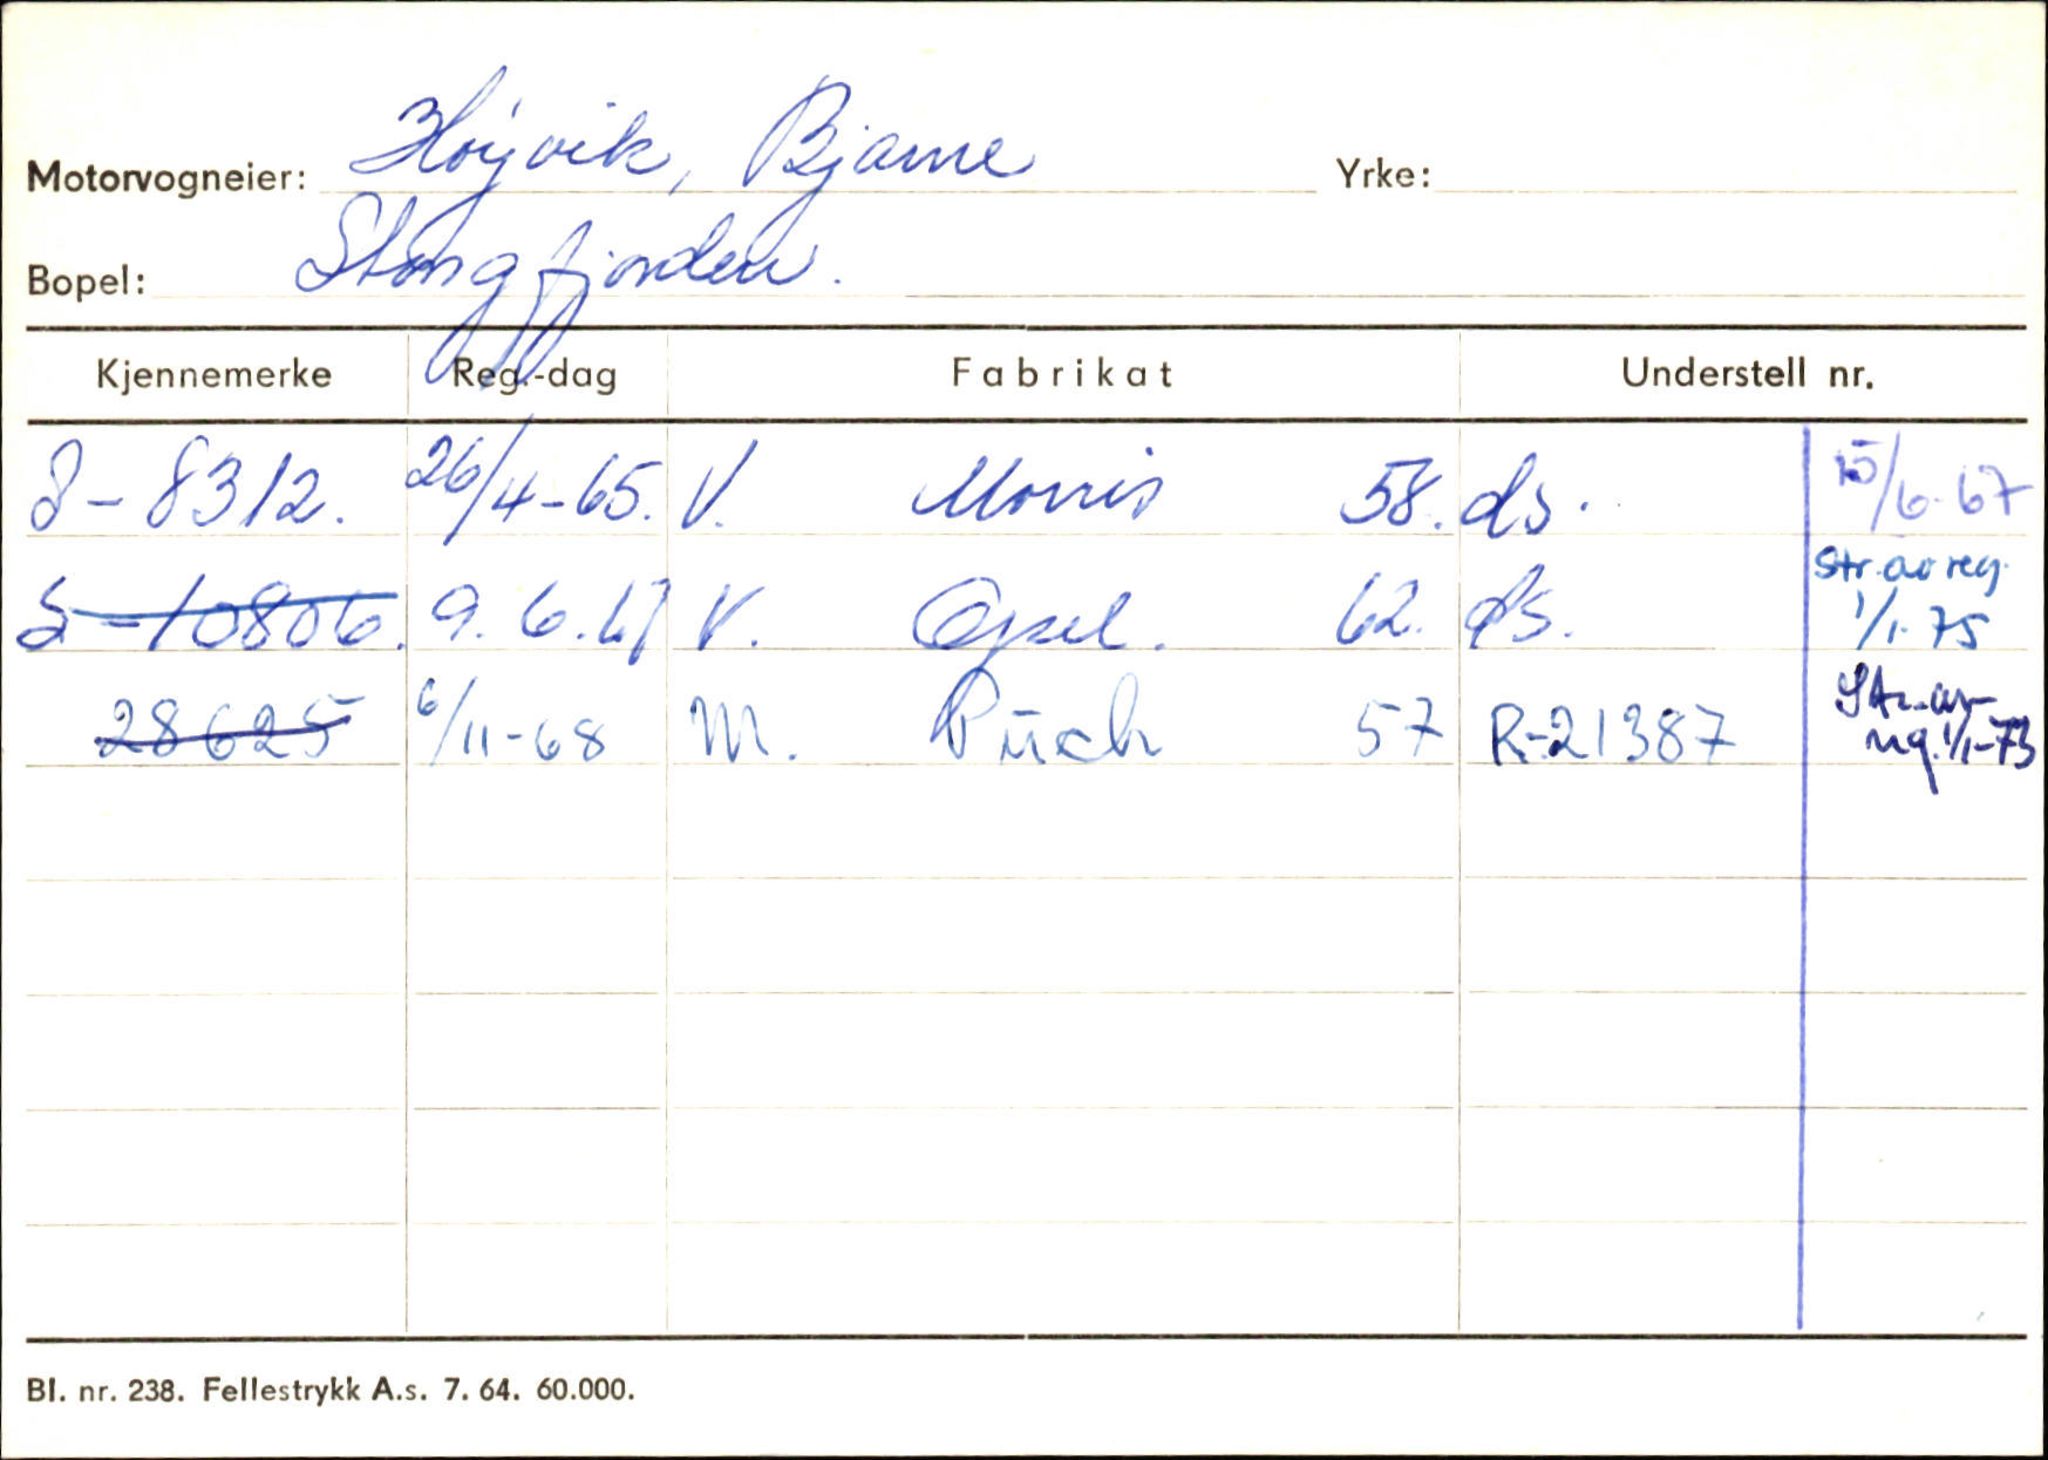 Motorvogneier: Høyvik, Bjarne Yrke:
Bopel: Stongfjorden.
Kjennemerke Reg.-dag Fabrikat Understell nr.
S-8312. 26/4-65. V. Morris 58. ds. 15/6-67
S-10806. 9.6.67 V. Opel. 62. ds. Str. av reg. 1/1-75
28625 6/11-68 M. Püch 57 R-21387 Str. av reg. 1/1-73
Bl. nr. 238. Fellestrykk A.s. 7. 64. 60.000.